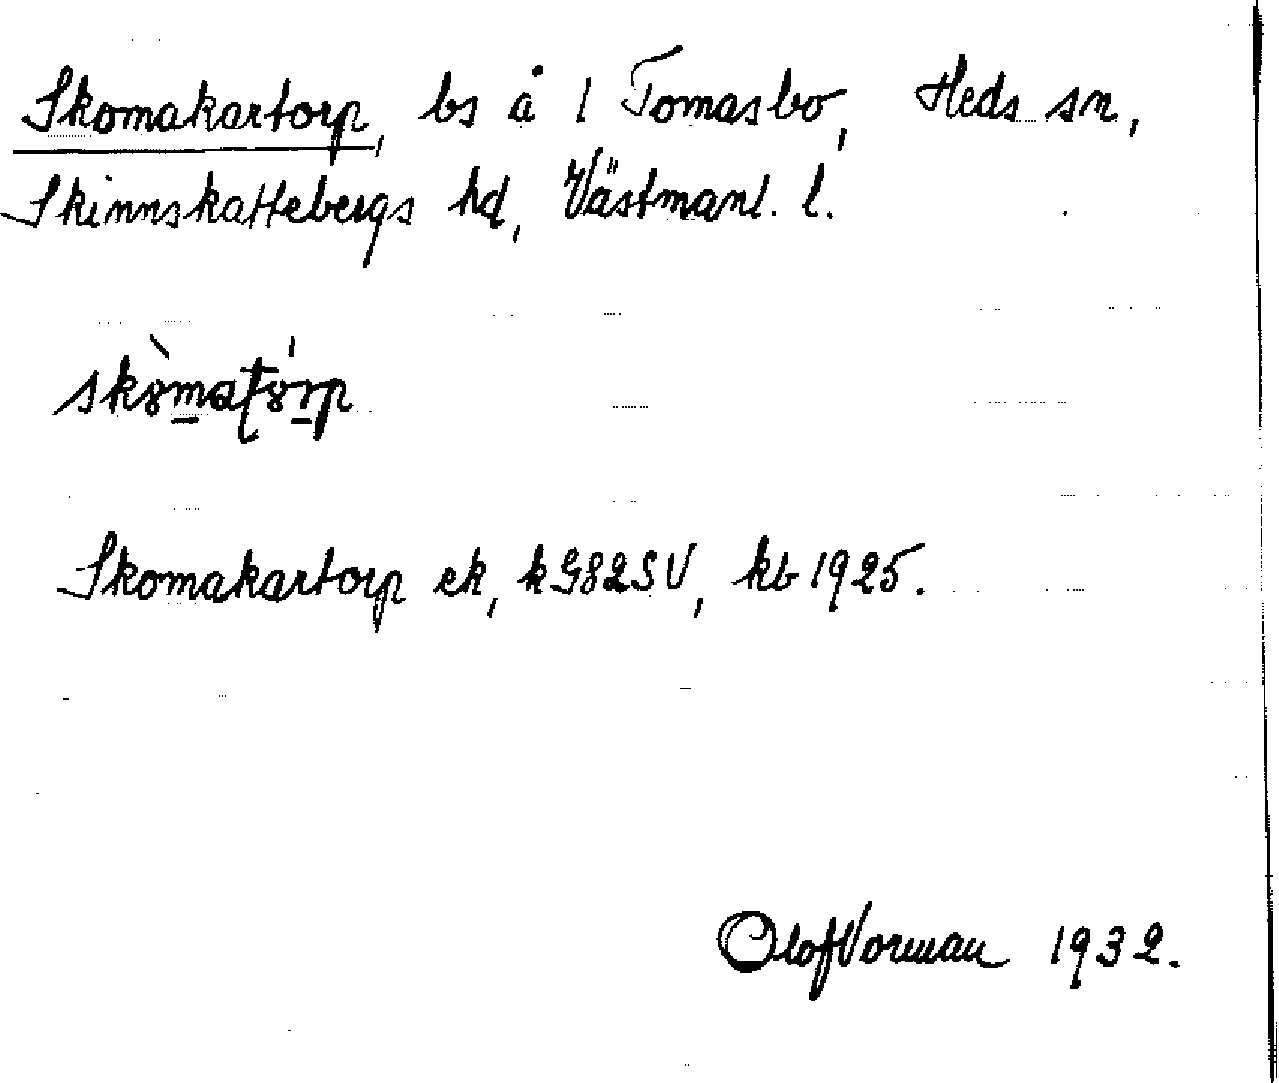 Skomakartorp, bs å 1 Tomasbo, Heds sn,
Skinnskattebergs hd, Västmanl. l.
Skomakartorp ek, kG82SV, kb 1925.
Olof Vorman 1932.